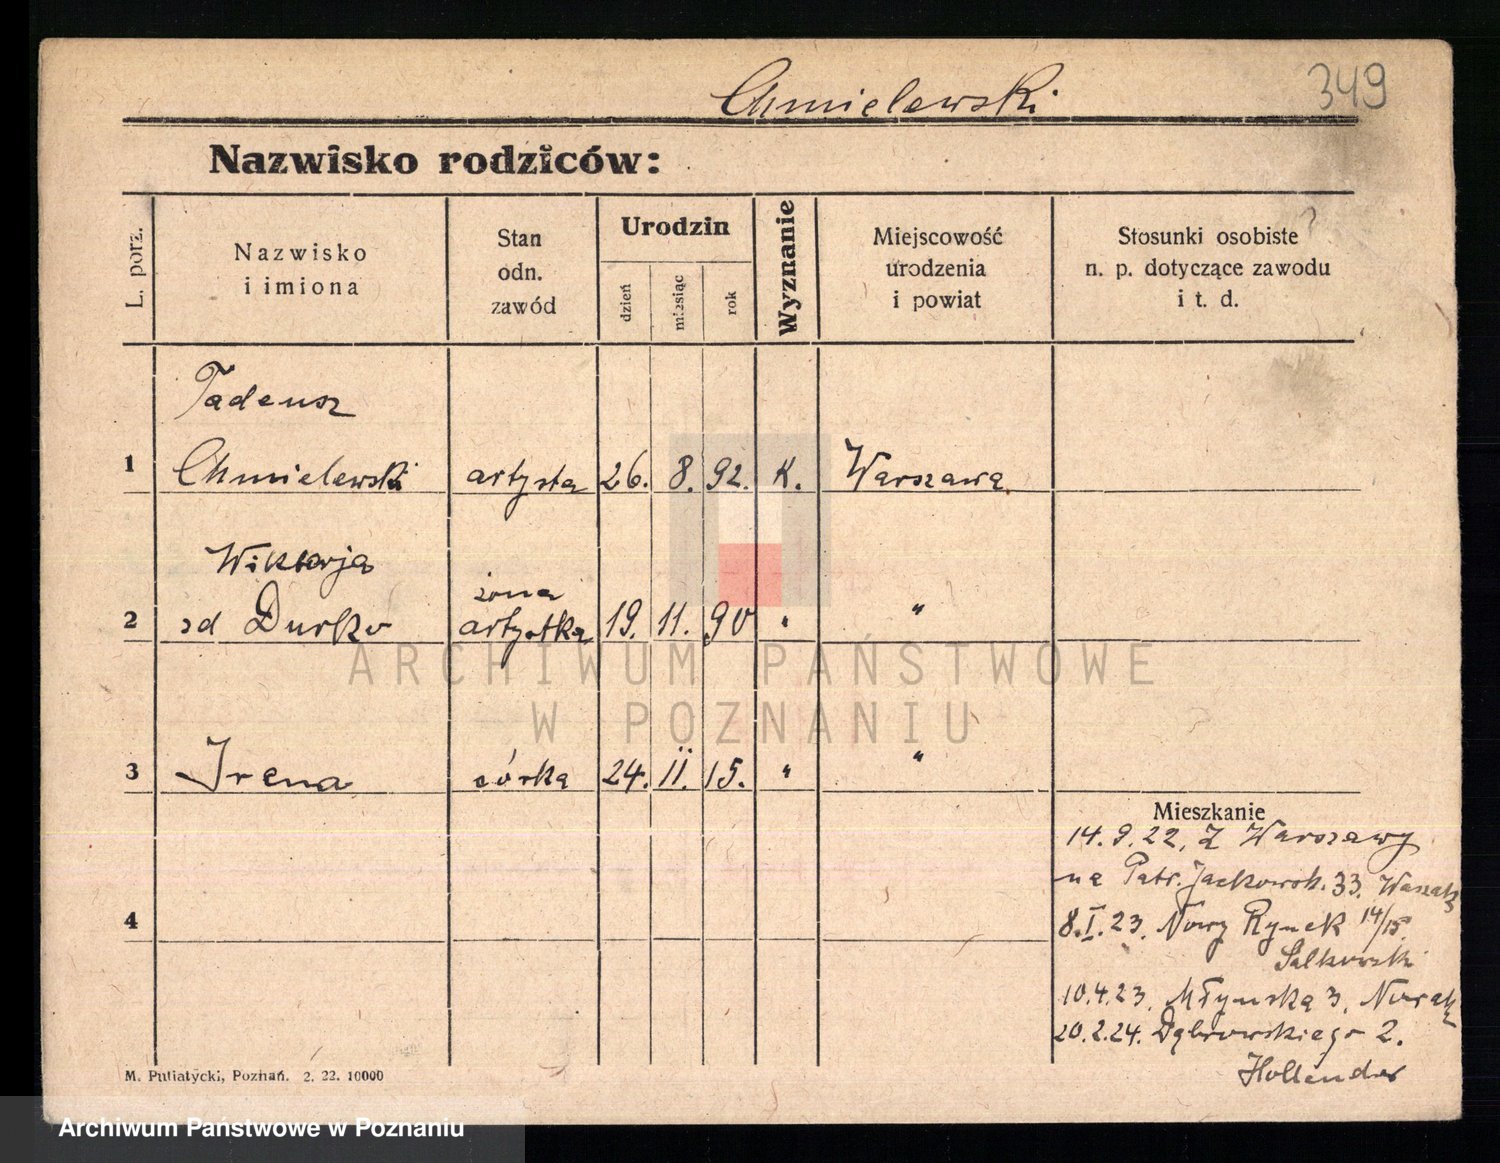 Chmielewski
349
Nazwisko rodziców:
L. porz.
Nazwisko
i imiona
Stan
odn.
zawód
Urodzin
dzień
miesiąc
rok
Wyznanie
Miejscowość
urodzenia
i powiat
Stosunki osobiste
n. p. dotyczące zawodu
i t. d.
Tadeusz
1 Chmielewski artysta 26. 8. 92. K. Warszawa
Wiktorja żona
2 zd Durko artystka 19. 11. 90 " "
3 Irena córka 24. II. 15. " "
Mieszkanie
14.9.22. Z Warszawy
na Patr. Jackowsk. 33.
4
8.I.23. Nowy Rynek 14/15
10.4.23. Młyńska 3. Nowak
20.2.24. Dąbrowskiego 2.
Hollender
M. Putiatycki, Poznań. 2. 22. 10000
ARCHIWUM PAŃSTWOWE
W POZNANIU
Archiwum Państwowe w Poznaniu